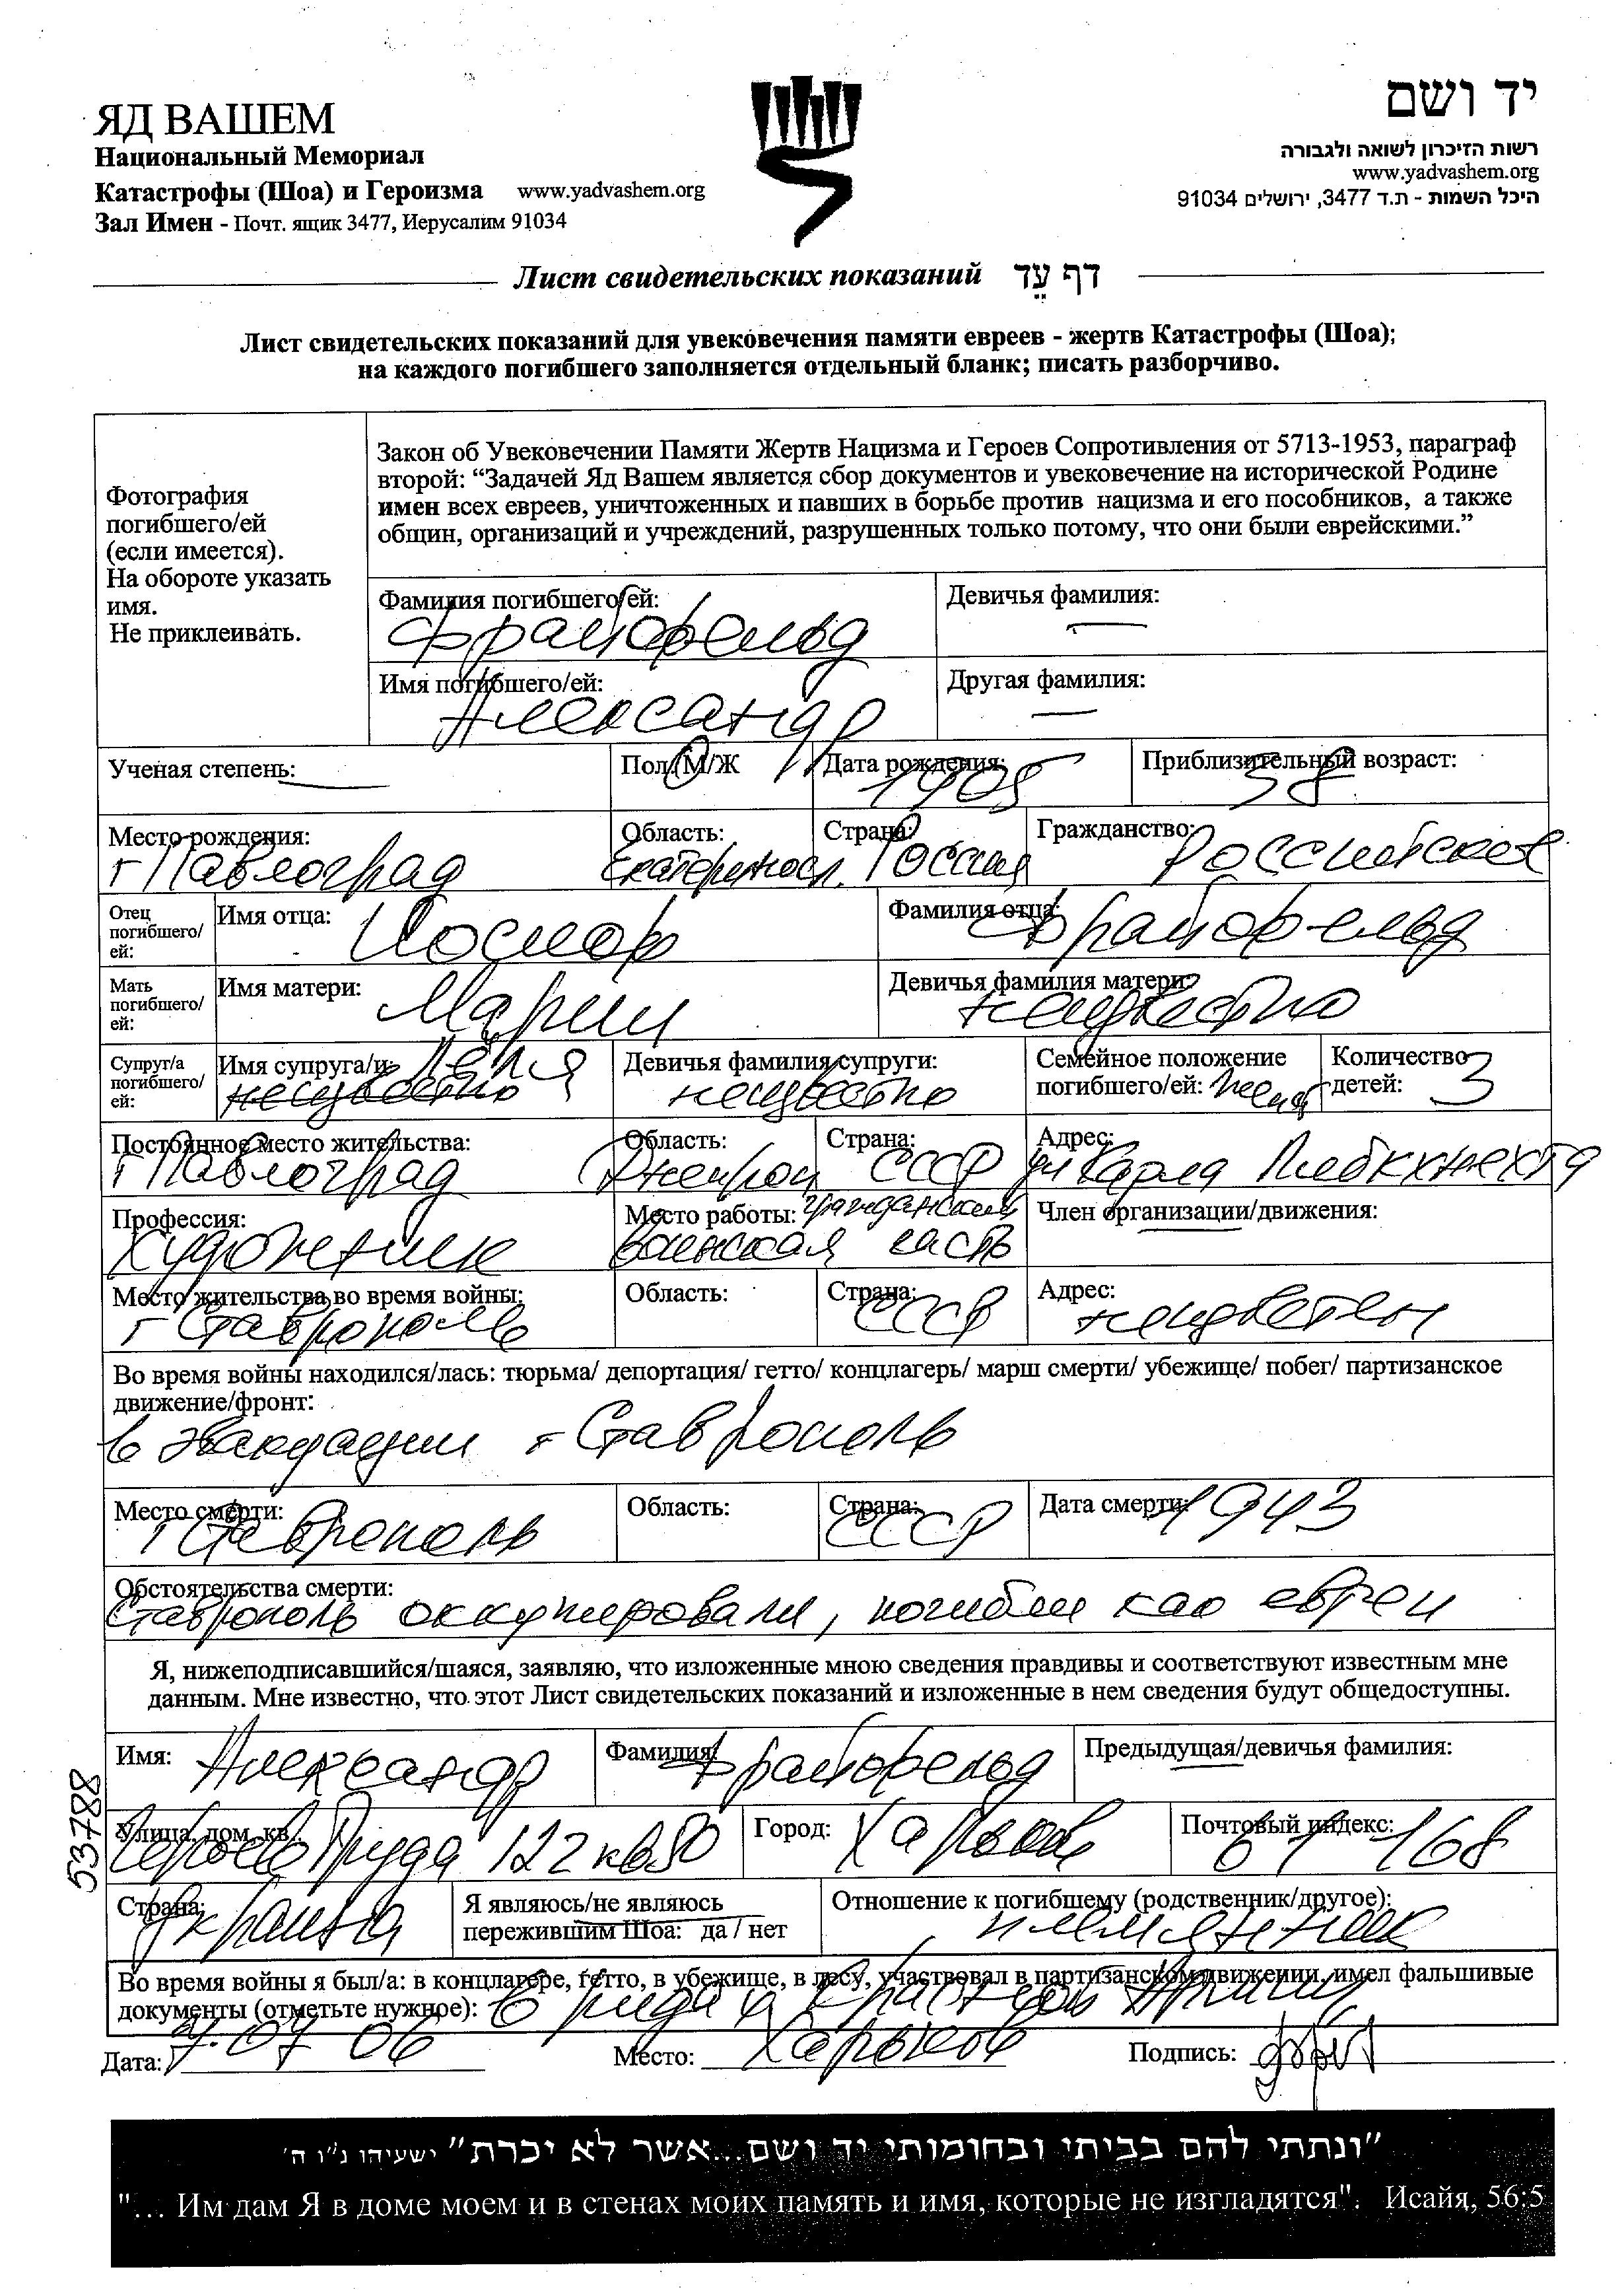 ЯД ВАШЕМ
Национальный Мемориал
Катастрофы (Шоа) и Героизма www.yadvashem.org
Зал Имен - Почт. ящик 3477, Иерусалим 91034
יד ושם
רשות הזיכרון לשואה ולגבורה
www.yadvashem.org
היכל השמות - ת.ד 3477, ירושלים 91034
Лист свидетельских показаний דף עֵד
Лист свидетельских показаний для увековечения памяти евреев - жертв Катастрофы (Шоа);
на каждого погибшего заполняется отдельный бланк; писать разборчиво.
Фотография
погибшего/ей
(если имеется).
На обороте указать
имя.
Не приклеивать.
Закон об Увековечении Памяти Жертв Нацизма и Героев Сопротивления от 5713-1953, параграф
второй: “Задачей Яд Вашем является сбор документов и увековечение на исторической Родине
имен всех евреев, уничтоженных и павших в борьбе против нацизма и его пособников, а также
общин, организаций и учреждений, разрушенных только потому, что они были еврейскими.”
Фамилия погибшего/ей: Девичья фамилия:
Фрайфельд —
Имя погибшего/ей: Другая фамилия:
Александр —
Ученая степень: — Пол: М/Ж Дата рождения: 1905 Приблизительный возраст: 38
Место рождения: Область: Страна: Гражданство:
г Павлоград Екатериносл. Россия Российское
Отец погибшего/ей: Имя отца: Иосиф Фамилия отца: Фрайфельд
Мать погибшего/ей: Имя матери: Марии Девичья фамилия матери: неизвестно
Супруг/а погибшего/ей: Имя супруга/и: Лёля неизвестно Девичья фамилия супруги: неизвестно Семейное положение погибшего/ей: женат Количество детей: 3
Постоянное место жительства: Область: Страна: Адрес:
г Павлоград Днепроп СССР ул Карла Либкнехта
Профессия: Место работы: гражданский Член организации/движения:
Художник воинская часть
Место жительства во время войны: Область: Страна: Адрес:
г Ставрополь СССР неизвестен
Во время войны находился/лась: тюрьма/ депортация/ гетто/ концлагерь/ марш смерти/ убежище/ побег/ партизанское
движение/фронт:
в эвакуации г Ставрополь
Место смерти: Область: Страна: Дата смерти: 1943
г Ставрополь СССР
Обстоятельства смерти:
Ставрополь оккупировали, погибли как евреи
Я, нижеподписавшийся/шаяся, заявляю, что изложенные мною сведения правдивы и соответствуют известным мне
данным. Мне известно, что этот Лист свидетельских показаний и изложенные в нем сведения будут общедоступны.
Имя: Александр Фамилия: Фрайфельд Предыдущая/девичья фамилия:
53788
Улица, дом, кв.: Героев Труда 12г кв 80 Город: Харьков Почтовый индекс: 61168
Страна: Украина Я являюсь/не являюсь пережившим Шоа: да / нет Отношение к погибшему (родственник/другое): племянник
Во время войны я был/а: в концлагере, гетто, в убежище, в лесу, участвовал в партизанском движении, имел фальшивые
документы (отметьте нужное): в рядах Красной Армии
Дата: 7.07 06 Место: Харьков Подпись:
"ונתתי להם בביתי ובחומותי יד ושם...אשר לא יכרת" ישעיהו נ"ו ה'
"... Им дам Я в доме моем и в стенах моих память и имя, которые не изгладятся". Исайя, 56:5